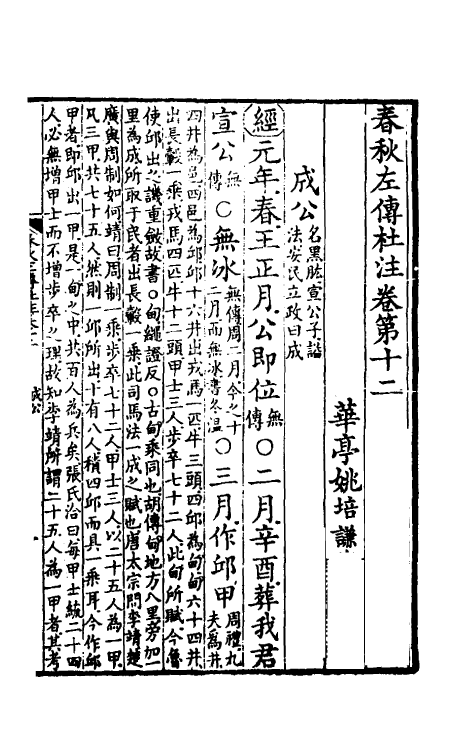 春秋左傳杜注卷第十二
華亭姚培謙
成公名黑肱宣公子諡法安民立政曰成
經元年春王正月公即位無傳○二月辛酉葬我君
宣公無傳○無冰無傳周二月今之十二月而無冰書冬溫○三月作邱甲周禮九夫爲井
四井爲邑四邑爲邱邱十六井出戎馬一匹牛三頭四邱爲甸甸六十四井
出長轂一乘戎馬四匹牛十二頭甲士三人步卒七十二人此甸所賦今魯
使邱出之譏重斂故書○甸繩證反○古甸乘同也胡傳甸地方八里旁加一
里爲成所取于民者出長轂一乘此司馬法一成之賦也唐太宗問李靖楚
廣與周制如何靖曰周制一乘步卒七十二人甲士三人以二十五人爲一甲
凡三甲共七十五人然則一邱所出十有八人積四邱而具一乘耳今作邱
甲者即邱出一甲是一甸之中共百人爲兵矣張氏洽曰每甲士統二十四
人必無增甲士而不增步卒之理故知李靖所謂二十五人爲一甲者其考
成公